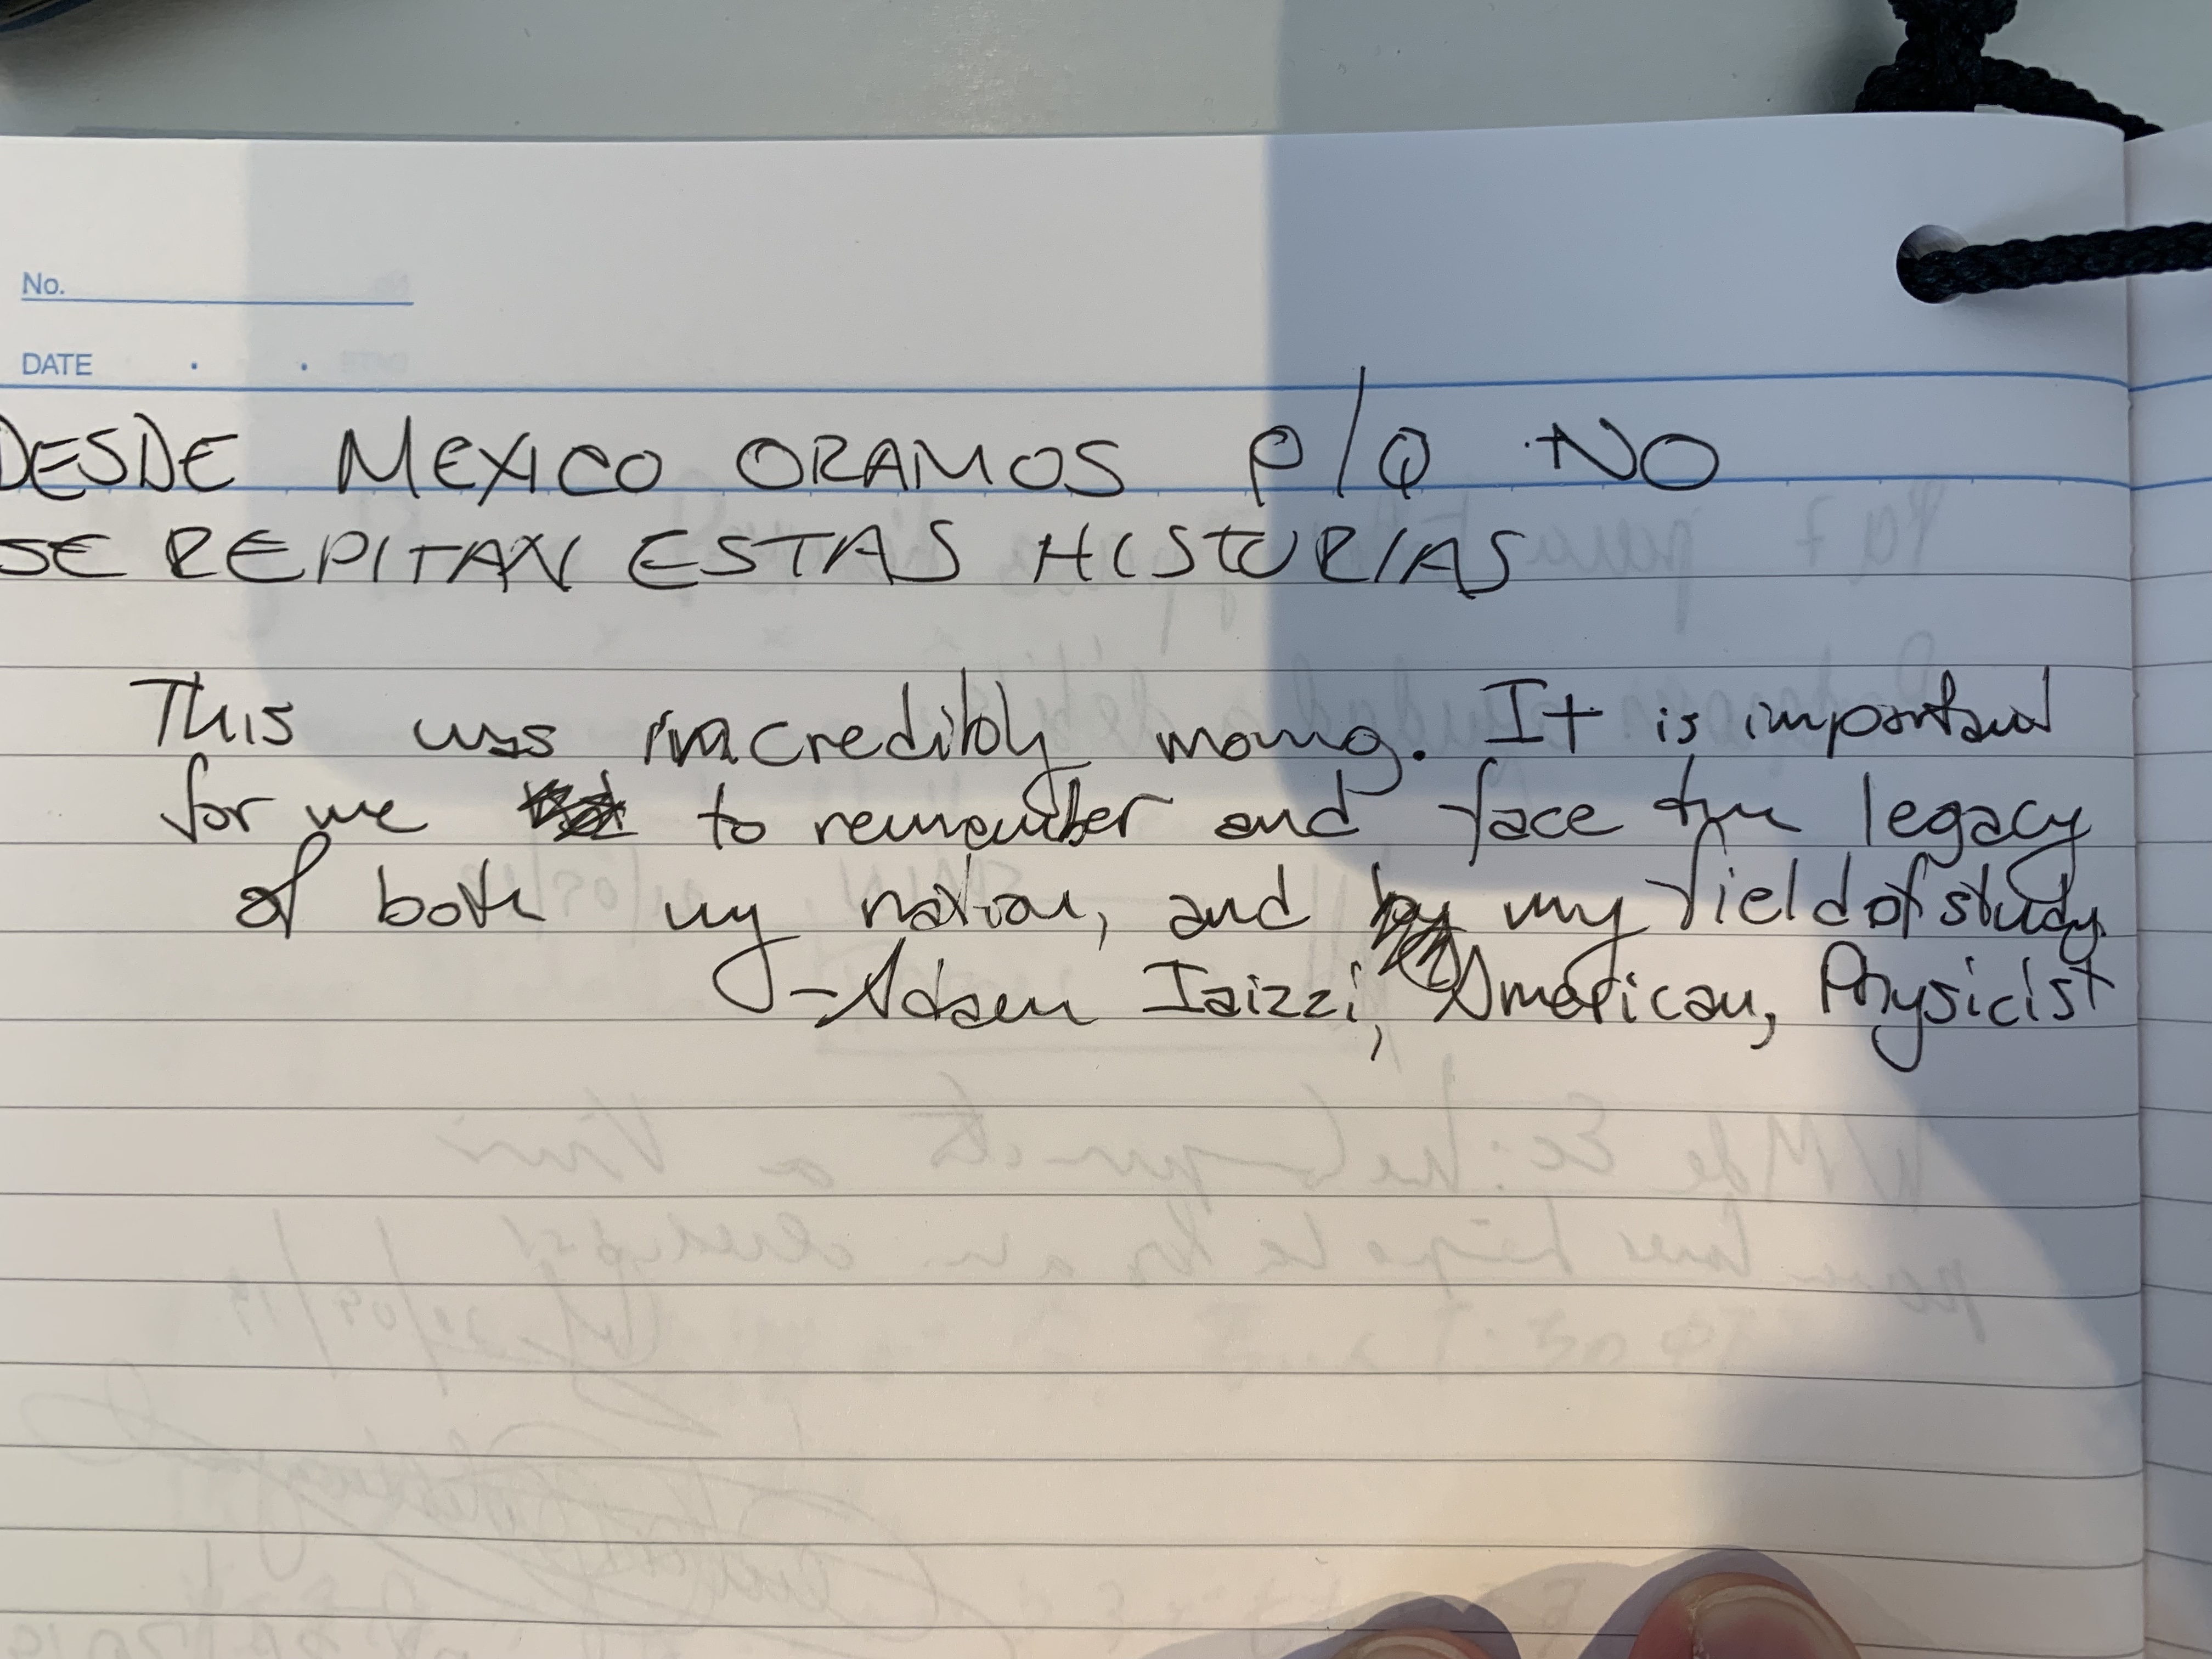 No.
DATE . .
DESDE MEXICO ORAMOS P/Q NO
SE REPITAN ESTAS HISTORIAS
This was incredibly moving. It is important
for me to remember and face the legacy
of both my nation, and my field of study.
- Adam Iaizzi, American, Physicist